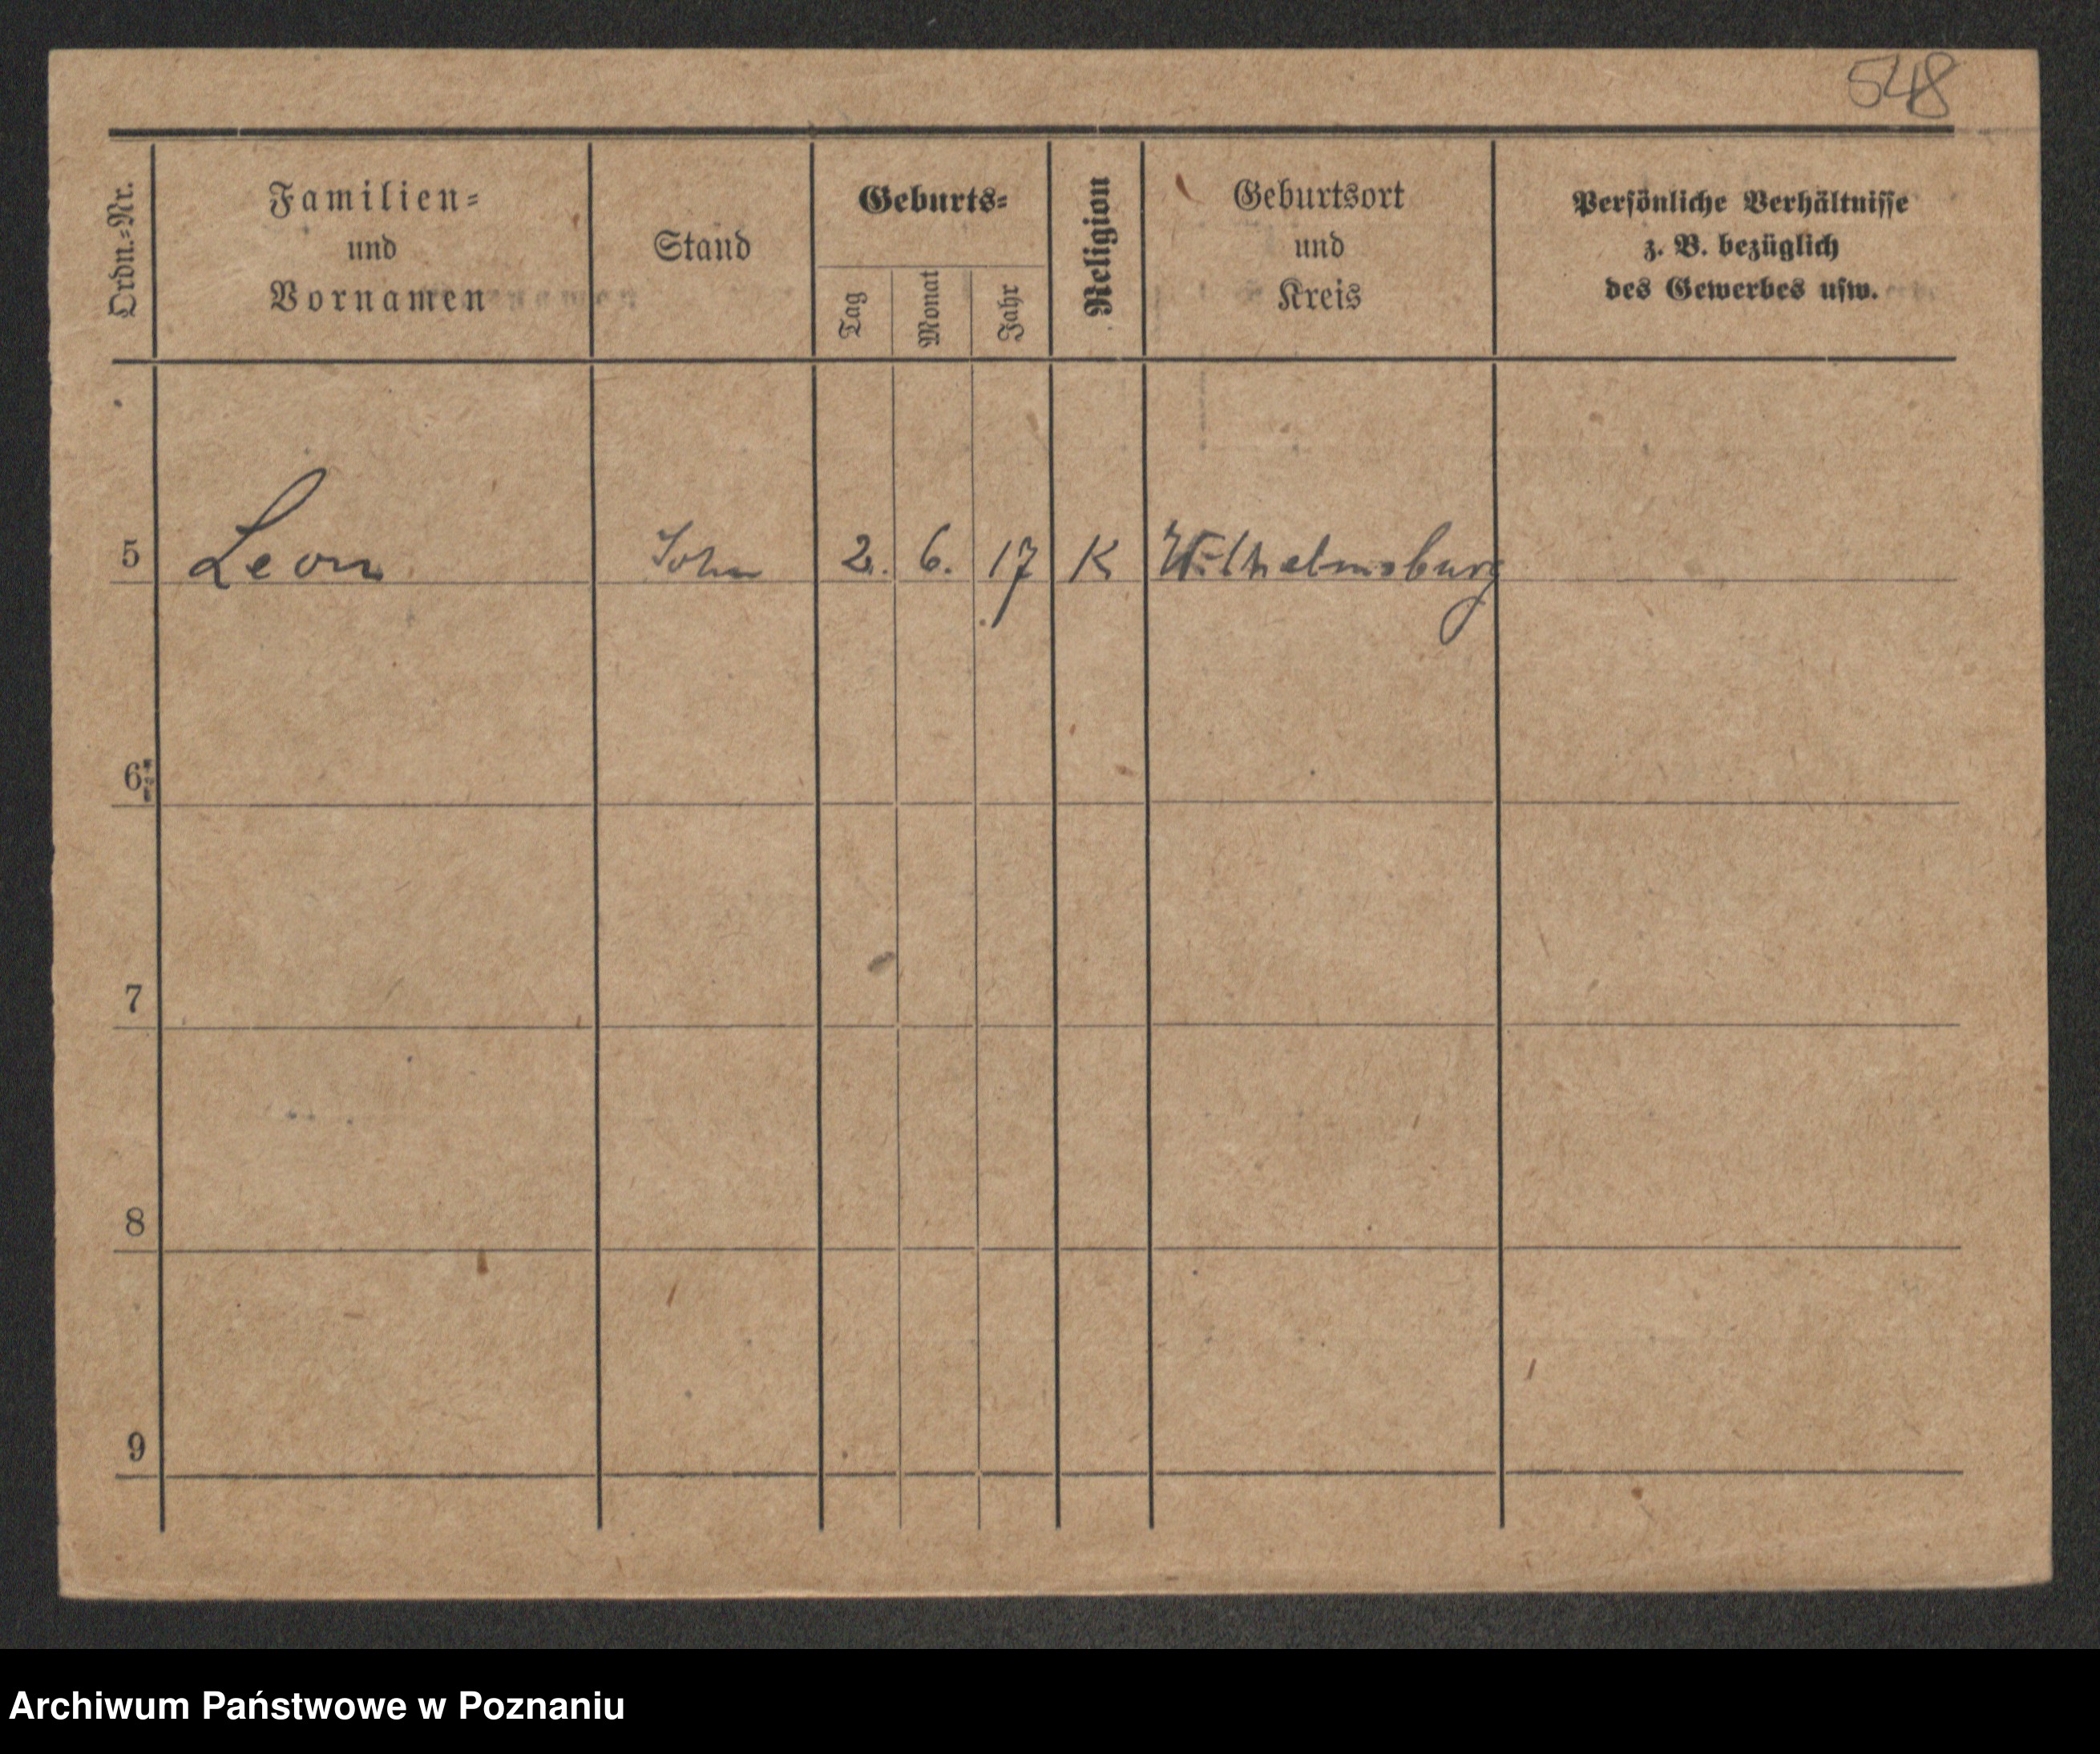 548
Ordn.-Nr.
Familien-
und
Vornamen
Stand
Geburts-
Tag
Monat
Jahr
Religion
Geburtsort
und
Kreis
Persönliche Verhältnisse
z. B. bezüglich
des Gewerbes usw.
5 Leon Sohn 2. 6. 17 K Wilhelmsburg
6
7
8
9
Archiwum Państwowe w Poznaniu